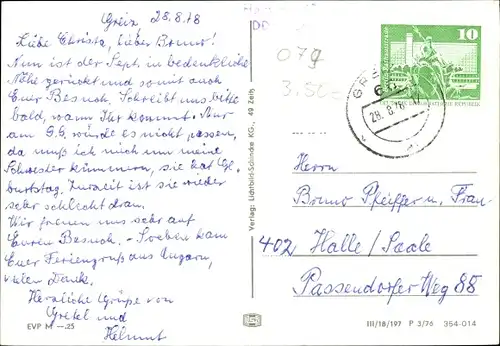 Greiz 28.8.78
Liebe Christa, lieber Bruno!
Nun ist der Sept. in bedenkliche
Nähe gerückt und somit auch
Euer Besuch. Schreibt uns bitte
bald, wann Ihr kommt. Nur
am 9.9. würde es nicht passen,
da muß ich mich um meine
Schwester kümmern, sie hat
burtstag. Zurzeit ist sie wieder
sehr schlecht dran.
Wir freuen uns sehr auf
Euren Besuch. - Soeben kam
Euer Feriengruß aus Ungarn,
vielen Dank.
Herzliche Grüße von
Gretel und
Helmut
EVP M —.25
Verlag: Lichtbild-Schincke KG., 49 Zeitz
079
10
DEUTSCHE DEMOKRATISCHE REPUBLIK
28.8.78
Herrn
Bruno Pfeiffer u. Frau
402 Halle/Saale
Passendorfer Weg 88
III/18/197 P 3/76 354-014